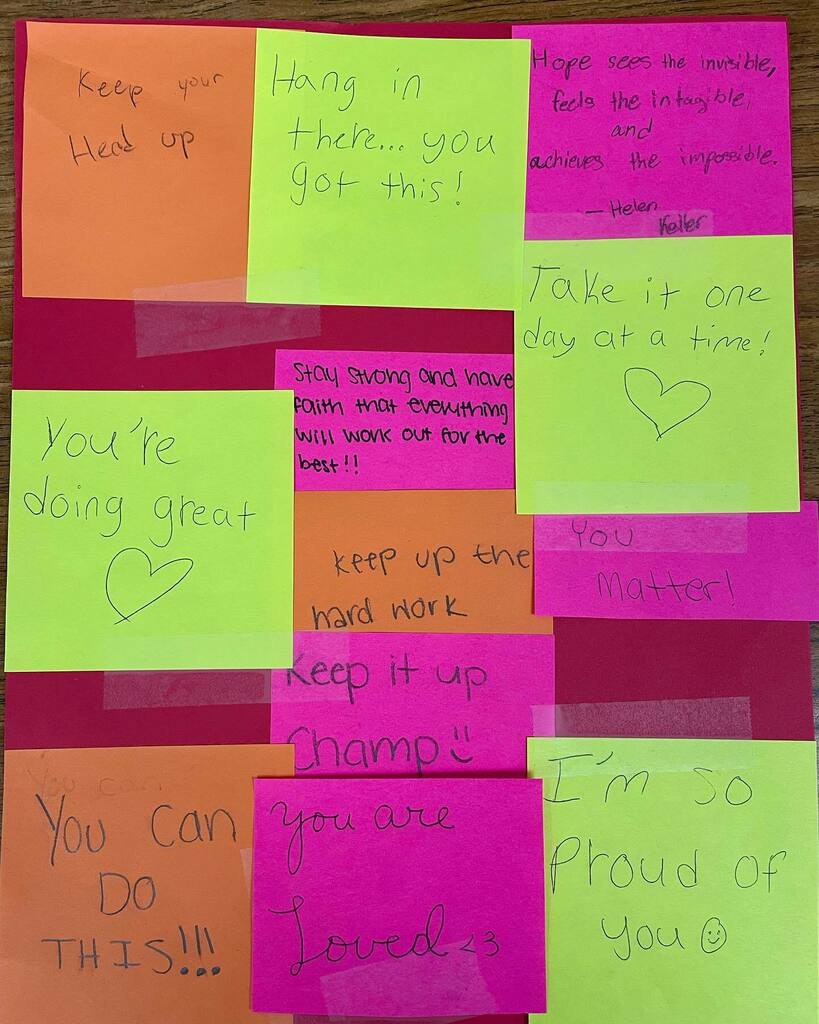 Keep your
Head up
Hang in
there... you
got this!
Hope sees the invisible,
feels the intagible,
and
achieves the impossible.
— Helen
Keller
Take it one
day at a time!
Stay strong and have
faith that everything
will work out for the
best!!
You're
doing great
keep up the
hard work
You
Matter!
Keep it up
Champ
You can
You can
DO
THIS!!!
you are
Loved <3
I'm so
Proud of
you